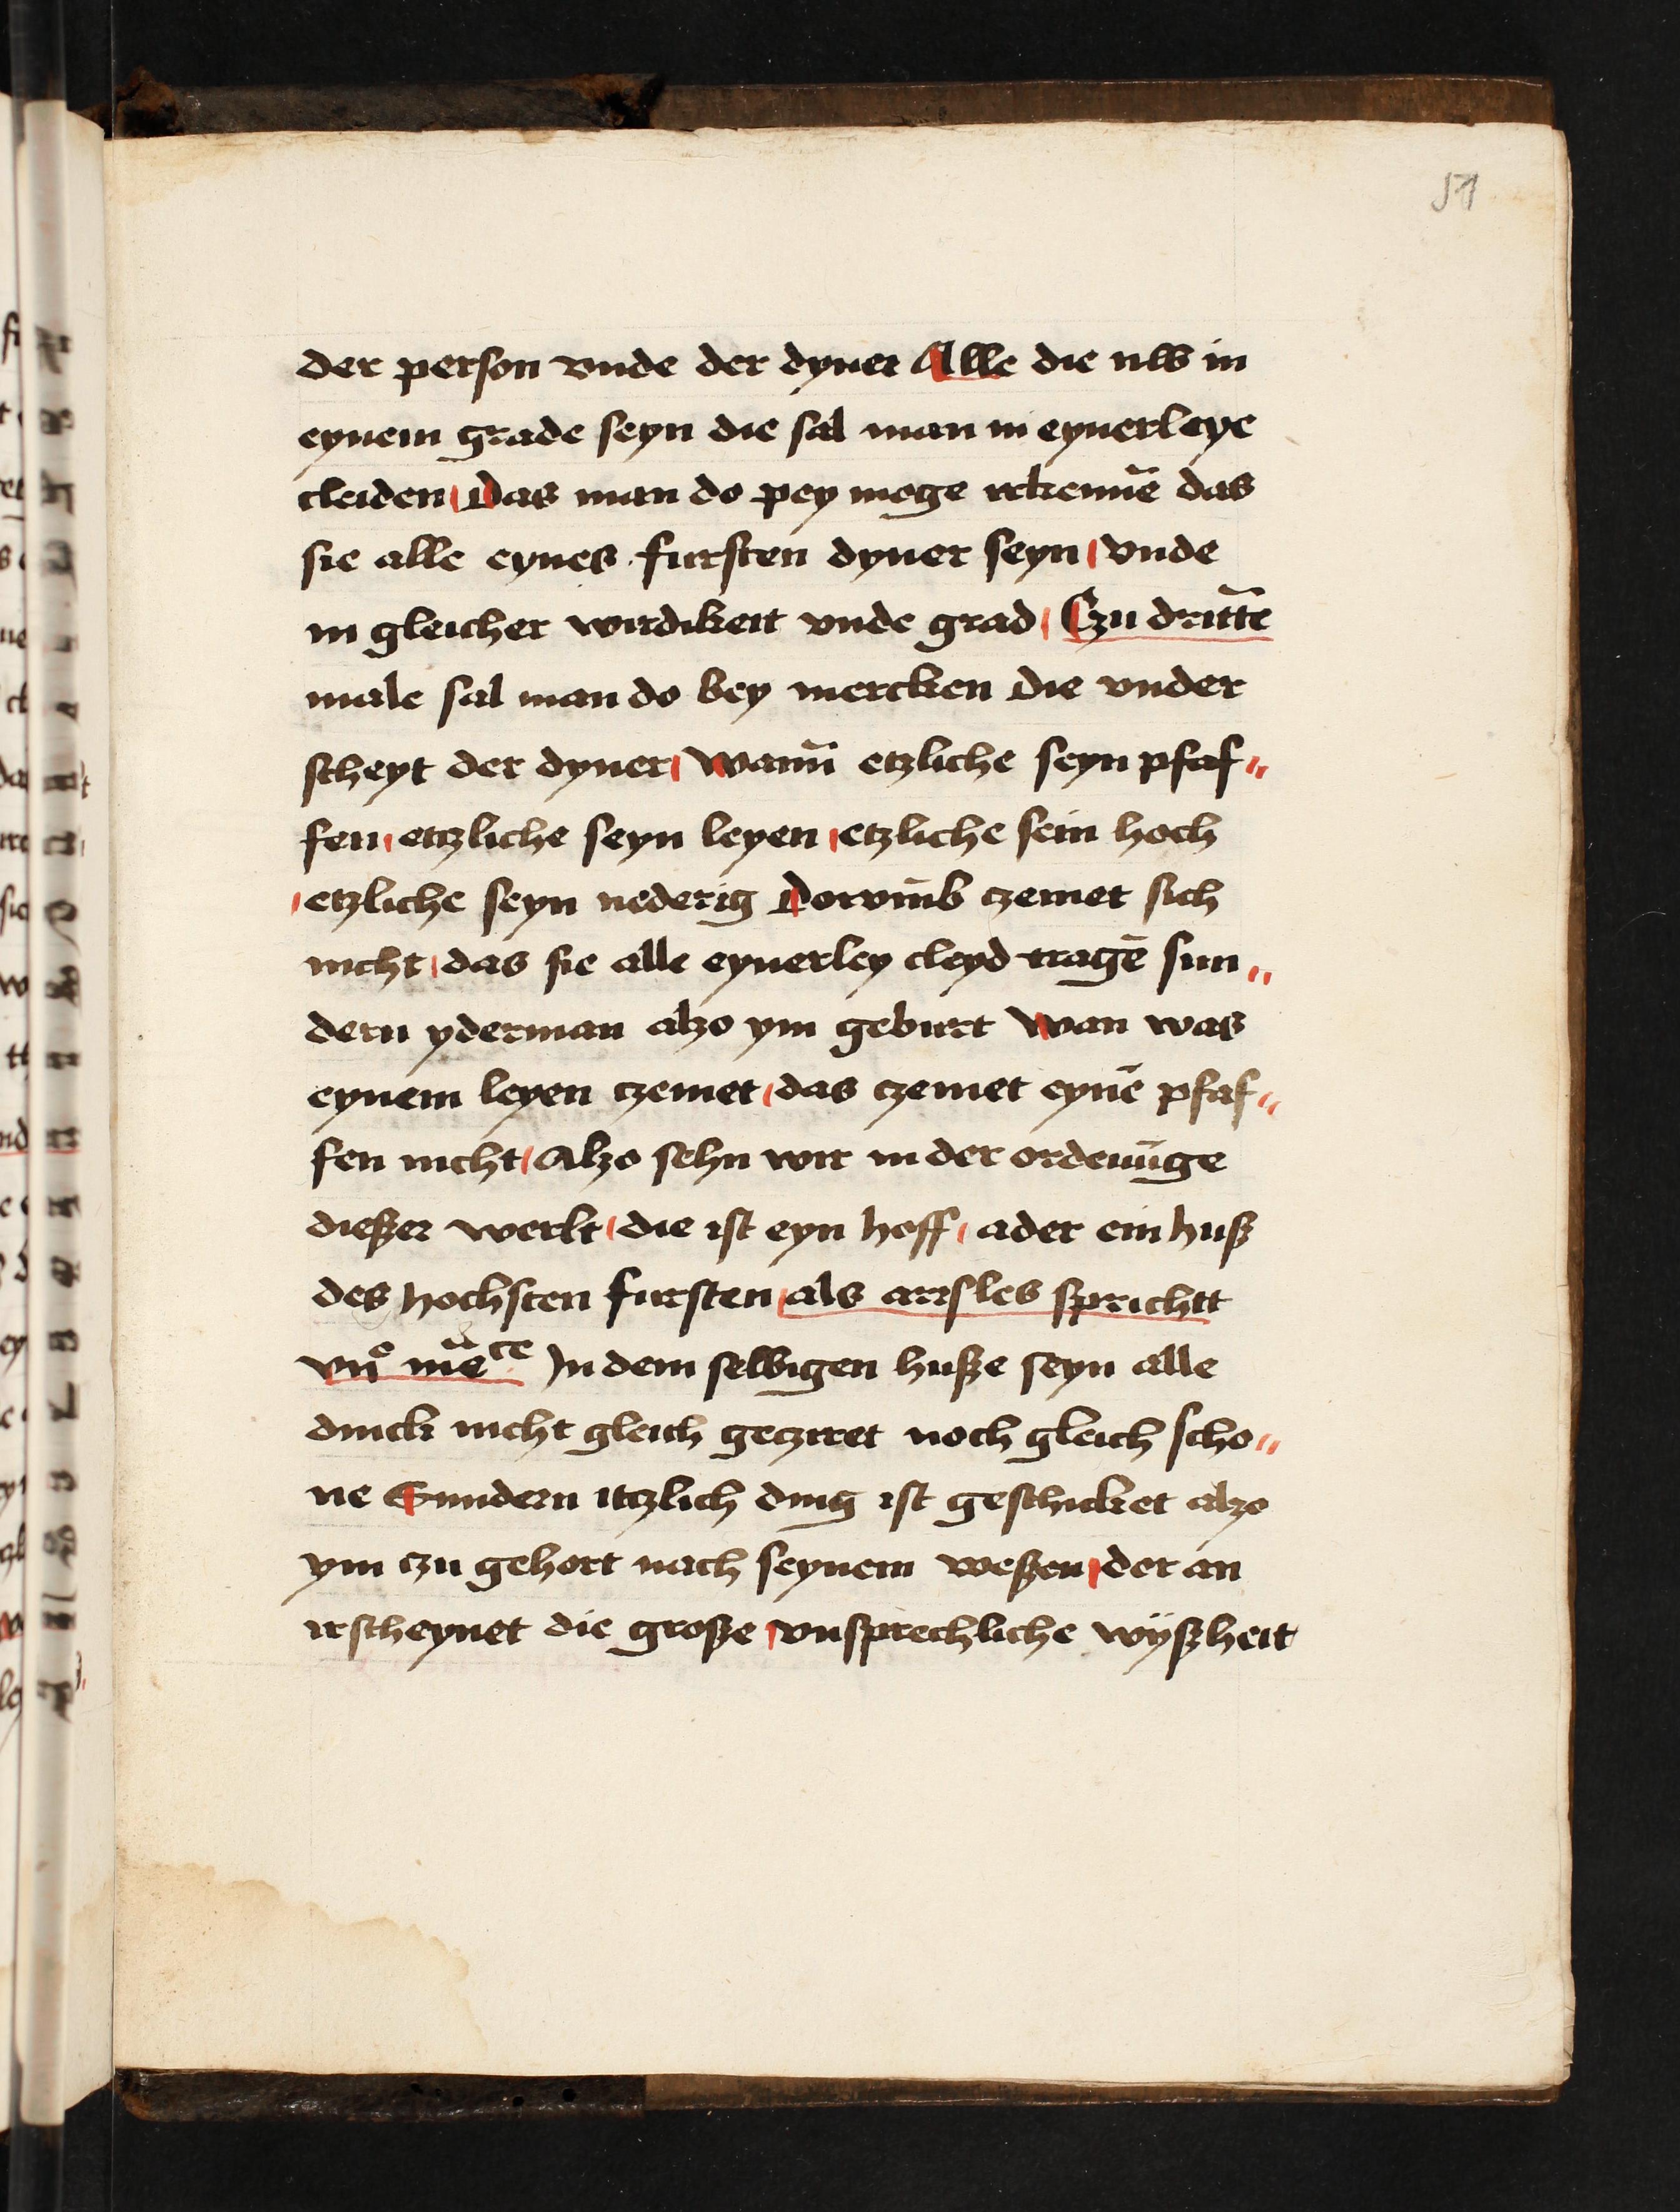 51
der person vnde der dyner Alle die nw in
eynem grade seyn die sal man in eynerleye
cleiden Das man do pey moge irkennē das
sie alle eynes fursten dyner seyn vnde
in gleicher wirdikeit vnde grad Czu drittē
male sal man do bey mercken die vnder
scheyt der dyner Wann̄ etzliche seyn pfaf〃
fen etczliche seyn leyen etzliche sein hoch
etzliche seyn nederig Dorvm̄b czemet sich
nicht das sie alle eynerley cleyd tragē sun〃
dern yderman alzo ym geburt Wan was
eynem leyen czemet das czemet eynē pfaf〃
fen nicht Alzo sehn wir in der ordenūge
dießer werlt die ist eyn hoff ader ein huß
des hochsten fursten als arrsles sprichtt
In dem selbigen huße seyn alle
dinck nicht gleich gecziret noch gleich scho〃
ne Sundern itczlich ding ist geschicket alzo
ym czu gehort nach seynem weßen der an
irscheynet die große vnsprechliche wÿßheit